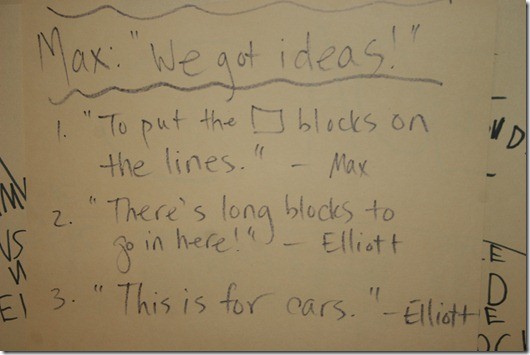 Max: "We got ideas!"
1. "To put the ▭ blocks on
the lines." - Max
2. "There's long blocks to
go in here!" - Elliott
3. "This is for cars." - Elliott